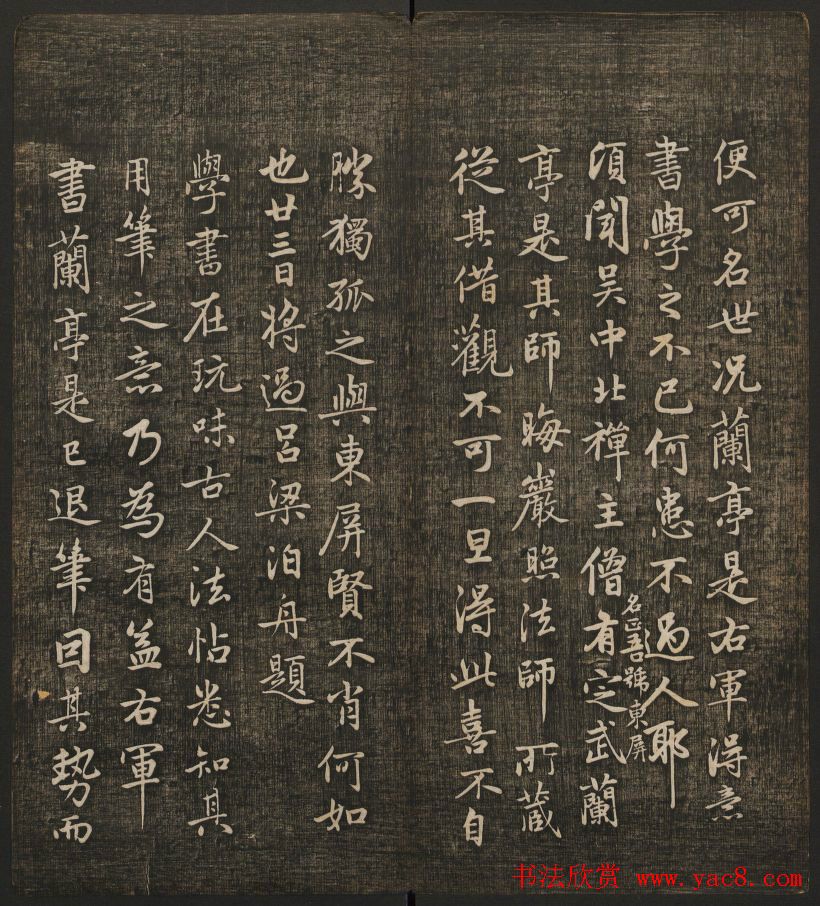 便可名世况蘭亭是右軍得意
書學之不已何患不過人耶
頃聞吴中北禪主僧有定武蘭
名正吾號東屏
亭是其師晦巖照法師所藏
從其借觀不可一旦得此喜不自
勝獨孤之與東屏賢不肖何如
也廿三日將過呂梁泊舟題
學書在玩味古人法帖悉知其
用筆之意乃為有益右軍
書蘭亭是已退筆因其勢而
书法欣赏 www.yac8.com